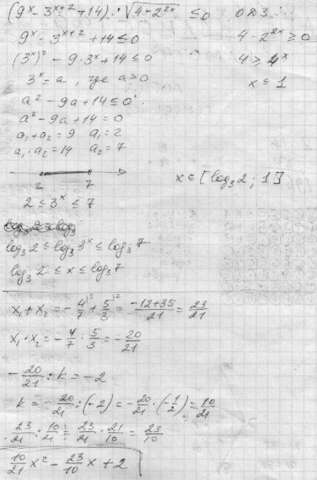 (9^x - 3^{x+2} + 14) · √(4 - 2^{2x}) ≤ 0   ОДЗ:
9^x - 3^{x+2} + 14 ≤ 0   4 - 2^{2x} ≥ 0
(3^x)^2 - 9·3^x + 14 ≤ 0   4 ≥ 4^x
3^x = a, где a>0   x ≤ 1
a^2 - 9a + 14 ≤ 0
a^2 - 9a + 14 = 0
a₁ + a₂ = 9   a₁ = 2
a₁ · a₂ = 14   a₂ = 7
2   7   x ∈ [log₃2; 1]
2 ≤ 3^x ≤ 7
log₃2 ≤ log₃3^x ≤ log₃7
log₃2 ≤ x ≤ log₃7
x₁ + x₂ = -4/7 + 5/3 = (-12+35)/21 = 23/21
x₁ · x₂ = -4/7 · 5/3 = -20/21
-20/21 : k = -2
k = -20/21 : (-2) = -20/21 · (-1/2) = 10/21
23/21 : 10/21 = 23/21 · 21/10 = 23/10
10/21 x^2 - 23/10 x + 2